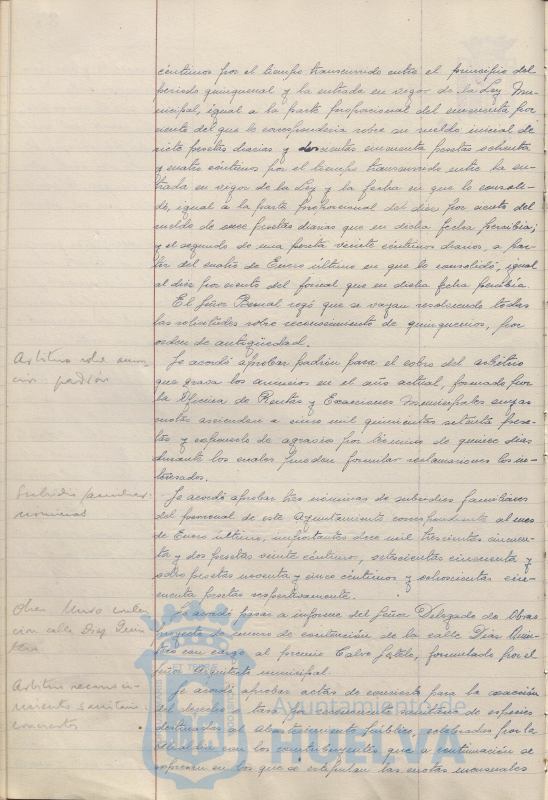 céntimos por el tiempo transcurrido entre el principio del
periodo quinquenal y la entrada en vigor de la Ley Mu-
nicipal, igual a la parte proporcional del cincuenta por
ciento del que le correspondería sobre su sueldo inicial de
siete pesetas diarias y doscientas cincuenta pesetas ochenta
y cuatro céntimos por el tiempo transcurrido entre la en-
trada en vigor de la Ley y la fecha en que lo consoli-
dó, igual a la parte proporcional del diez por ciento del
sueldo de once pesetas diarias que en dicha fecha percibía;
y el segundo de una peseta veinte céntimos diarios, a par-
tir del cuatro de Enero último en que lo consolidó, igual
al diez por ciento del jornal que en dicha fecha percibía.
El Señor Bernal rogó que se vayan resolviendo todas
las solicitudes sobre reconocimiento de quinquenios, por
orden de antigüedad.
Arbitrio sobre anun-
cios padrón
Se acordó aprobar padrón para el cobro del arbitrio
que grava los anuncios en el año actual, formado por
la Oficina de Rentas y Exacciones Municipales cuyas
cuotas ascienden a cinco mil quinientas setenta pese-
tas y exponerlo de agravio por término de quince días
durante los cuales pueden formular reclamaciones los in-
teresados.
Subsidio familiar
nóminas
Se acordó aprobar tres nóminas de subsidios familiares
del personal de este Ayuntamiento correspondiente al mes
de Enero último, importantes doce mil trescientas cincuen-
ta y dos pesetas veinte céntimos, setecientas cincuenta y
ocho pesetas noventa y cinco céntimos y ochocientas cin-
cuenta pesetas respectivamente.
Obras Muro conten-
cion calle Diaz
Se acordó pasar a informe del Señor Delegado de Obras
proyecto de muros de contención de la calle Días
con cargo al premio Calvo Sotelo, formulado por el
Señor Arquitecto municipal.
Arbitrio reconoci-
miento sanitario
conciertos
Se acordó aprobar actas de convenio para la exacción
del derecho o tasa por reconocimiento sanitario de especies
destinadas al Abastecimiento público, celebradas por la
Alcaldía con los contribuyentes que a continuación se
expresan en los que se estipulan las cuotas mensuales
Ayuntamiento de
HUELVA